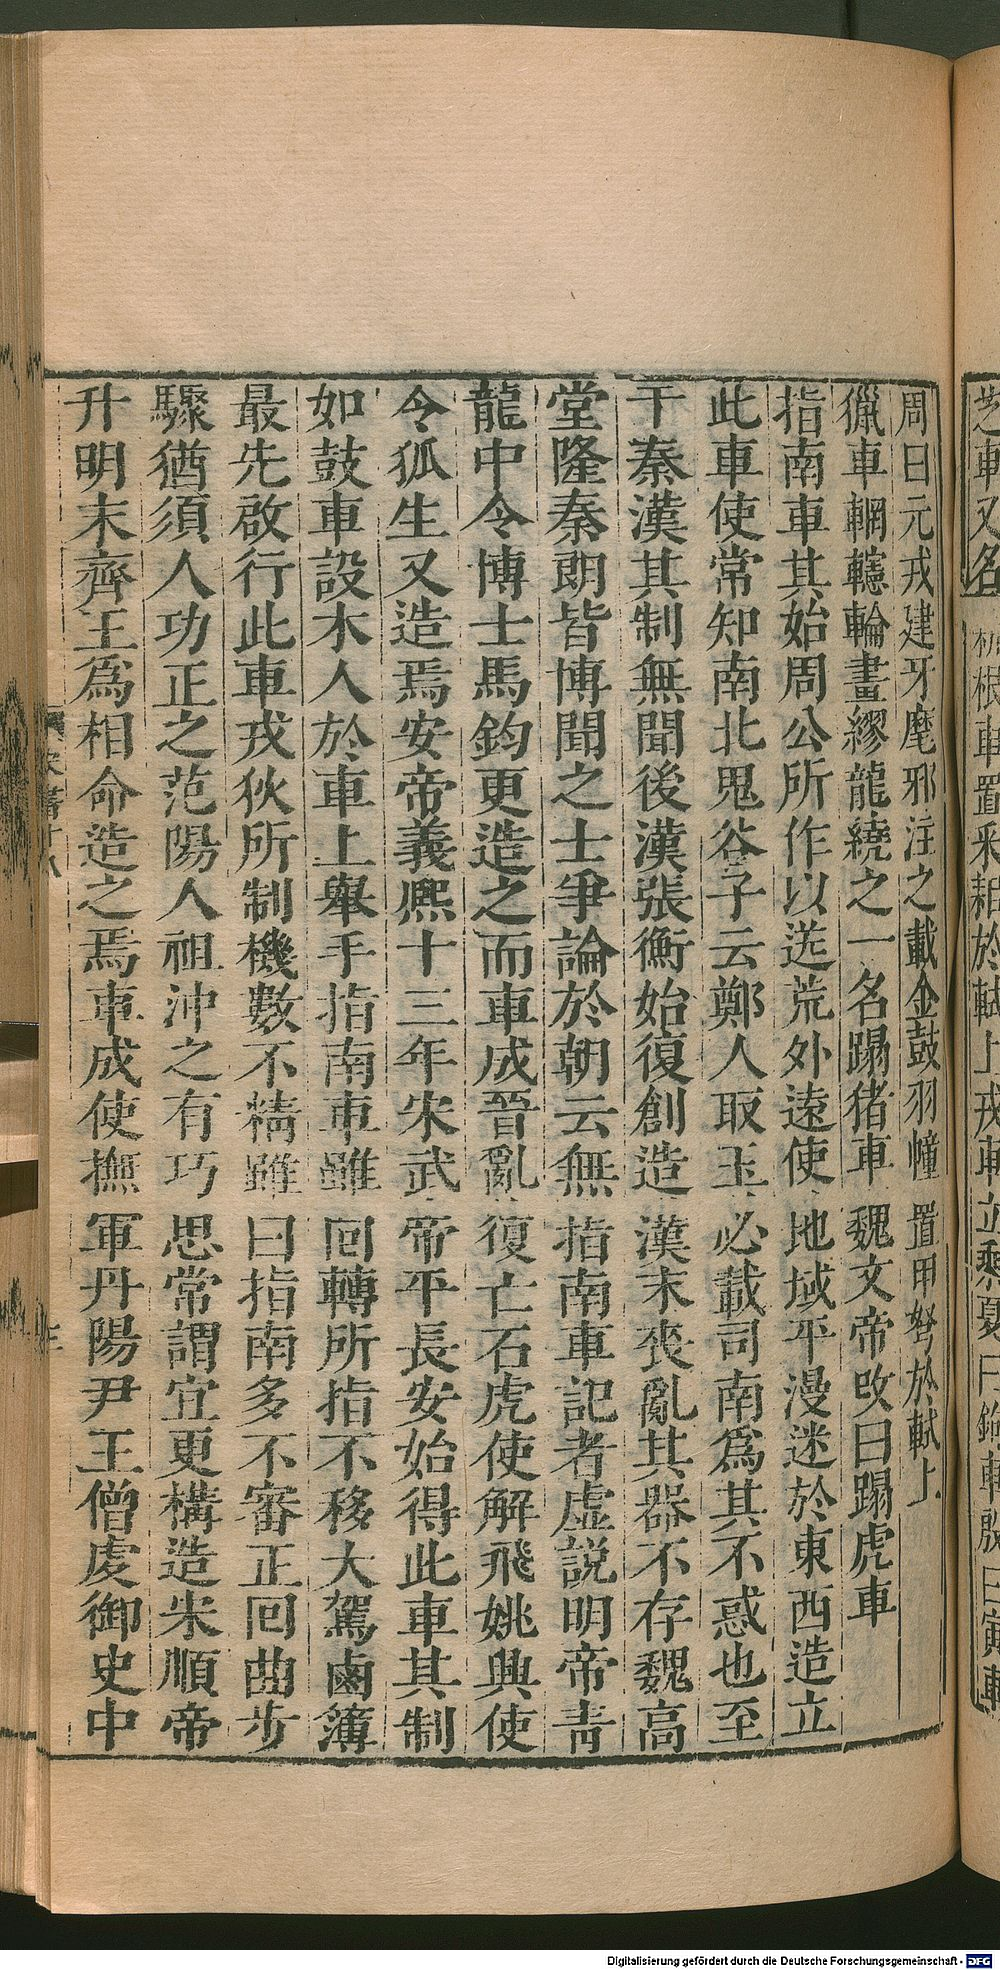 芝車又名
耕根車置耒耜於軾上戎車立乗夏曰鉤車殷曰寅車
周曰元戎建牙麾邪注之載金鼓羽幢置甲弩於軾上
獵車輞轅輪畫繆龍繞之一名蹋猪車魏文帝攺曰蹋虎車
指南車其始周公所作以送荒外遠使地域平漫迷於東西造立
此車使常知南北鬼谷子云鄭人取玉必載司南爲其不惑也至
于秦漢其制無聞後漢張衡始復創造漢末喪亂其器不存魏高
堂隆秦朗皆博聞之士爭論於朝云無指南車記者虛説明帝青
龍中令博士馬鈞更造之而車成晉亂復亡石虎使解飛姚興使
令狐生又造焉安帝義熙十三年宋武帝平長安始得此車其制
如鼓車設木人於車上舉手指南車雖回轉所指不移大駕鹵簿
最先啟行此車戎狄所制機數不精雖曰指南多不審正回曲步
驟猶須人功正之范陽人祖沖之有巧思常謂宜更構造宋順帝
升明末齊王爲相命造之焉車成使撫軍丹陽尹王僧虔御史中
宋書十八
三
Digitalisierung gefördert durch die Deutsche Forschungsgemeinschaft - DFG